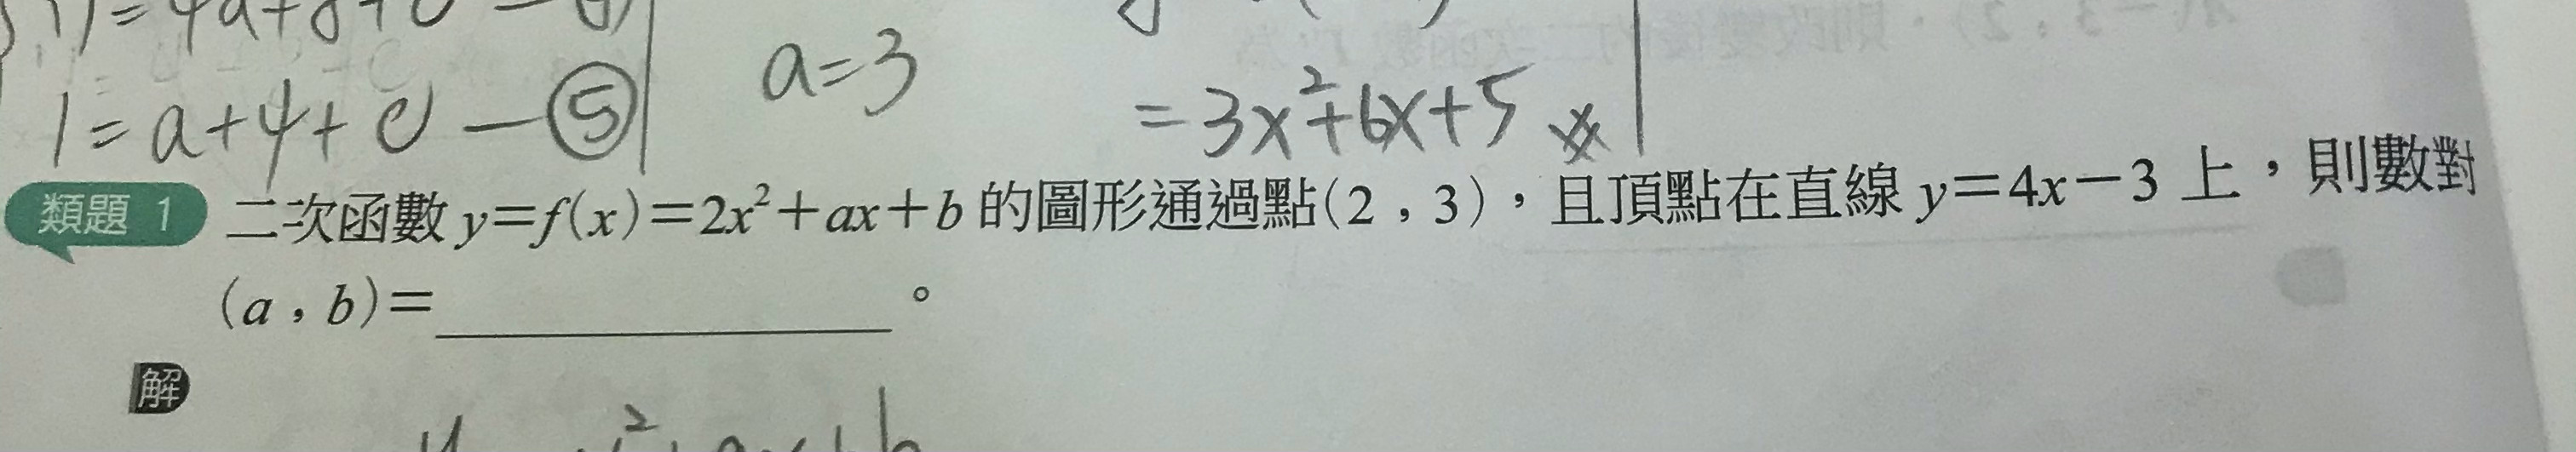 =4a+8+c
a=3
1=a+4+c-⑤
=3x²+6x+5
類題 1 二次函數 y=f(x)=2x²+ax+b 的圖形通過點(2,3),且頂點在直線 y=4x-3 上,則數對
(a,b)=__________。
解